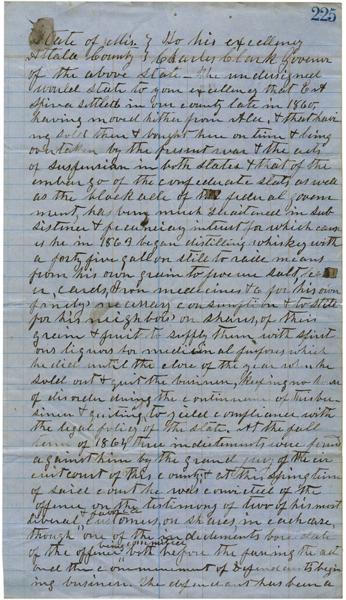 225
State of Miss } To his excellency
Attala County } Charles Clark Govenor
of the above State - The undersigned
would state to your excellency that E A
settled in our county late in 1860,
having moved hither from Ala, & that havi
ng sold there & bought here on time & being
overtaken by the present war & the acts
of suspension in both states & that of the
embargo of the confederate stats as well
as the blockade of the federal govern
ment, has been much straitened in sub
sistence & pecuniary intrest for which caus
e he in 1863 began distilling whiskey with
a forty five gallon still to raise means
from his own grain to procure salt,
cards, Iron medicines &c for his own
family necessary consumption & to still
for his neighbors on shares, of their
grain & fruit to supply them with spirit
ous liquors for medicinal purposes which
he did until the close of the year when he
sold out & quit the business, keeping no house
of disorder during the continuance of this bu
siness & quitting to yield compliance with
the legal policy of the State. At the fall
term of 1864 three indictments were found
against him by the grand jury of the cir
cuit court of this county & at this spring term
of said court he was convicted of the
offense on the testimony of two of his most
several customers, on shares, in each case,
though one of the indictments bore date
of the offence being committed both before the passing the act
and the commencement of Defendants begin
ing business. The defendant has been a